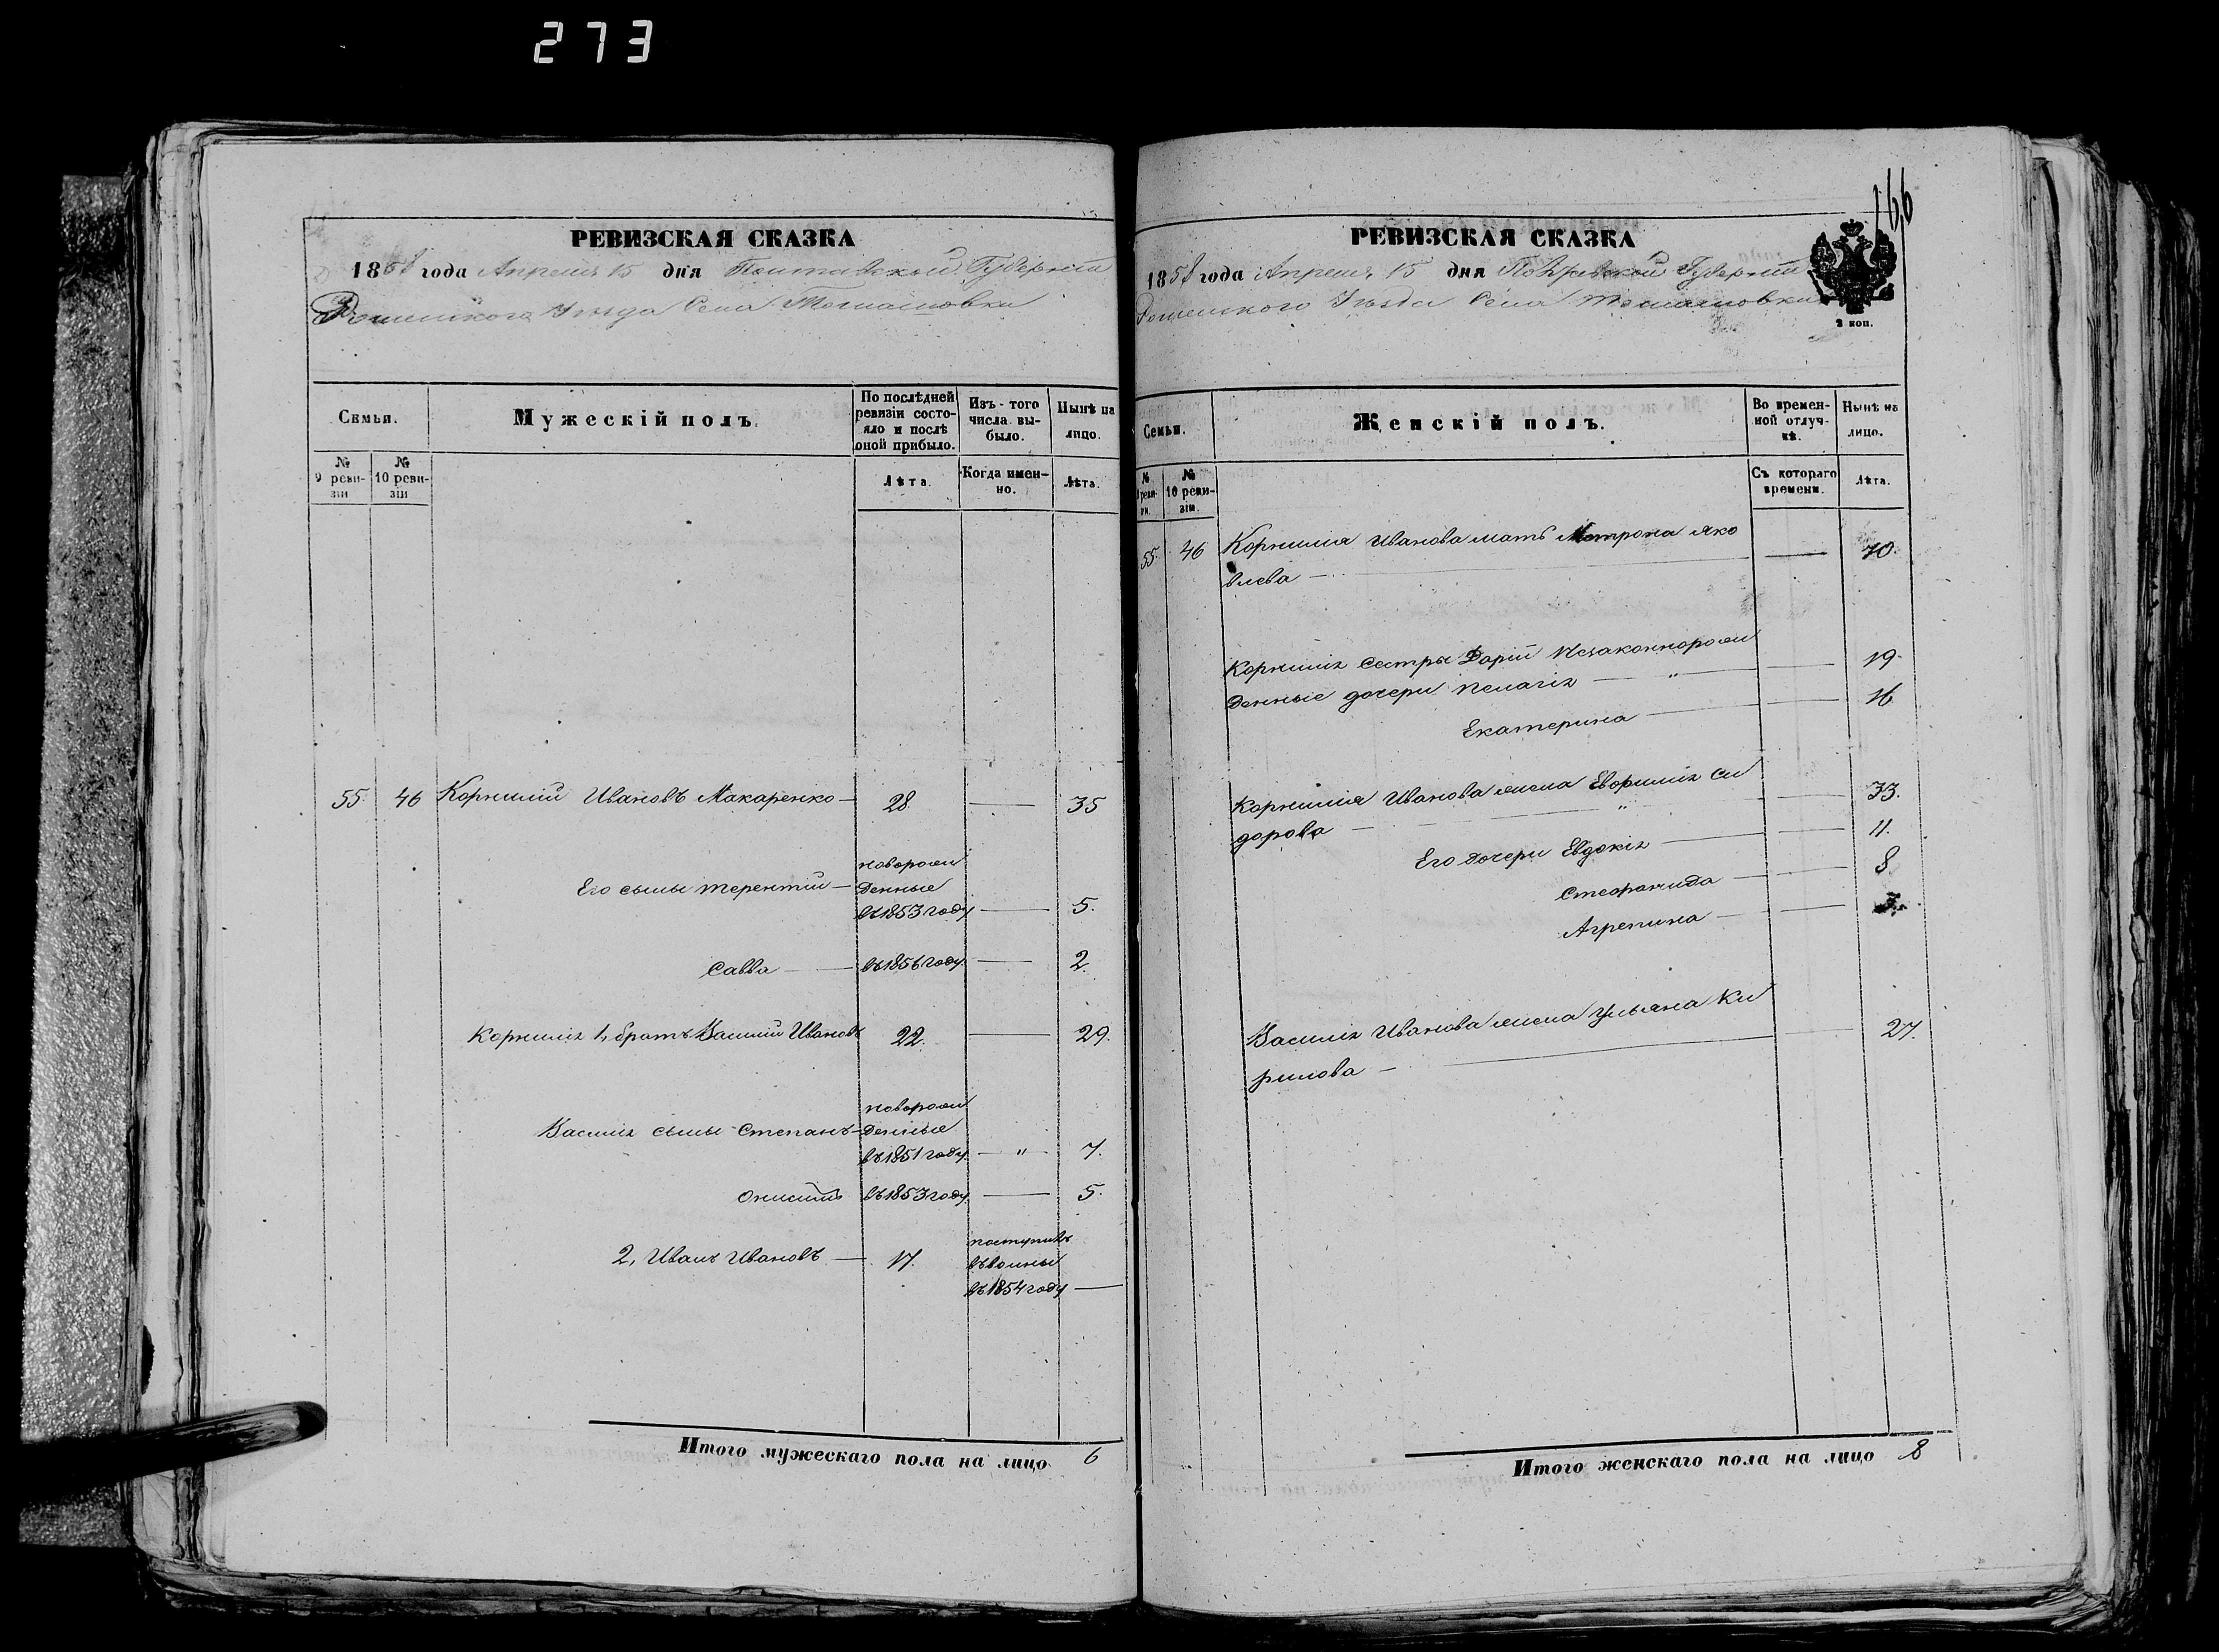 273
166
РЕВИЗСКАЯ СКАЗКА
1858 года Апреля 15 дня Полтавской Губерніи
Роменского Уѣзда Села Томашовки
Семьи.
Мужескій полъ.
По послѣдней ревизіи состояло и послѣ оной прибыло.
Изъ-того числа выбыло.
Нынѣ на лицо.
№ 9 ревизіи
№ 10 ревизіи
Лѣта.
Когда именно.
Лѣта.
55. 46 Корнилій Ивановъ Макаренко — 28 — 35
новорож
Его сыны Терентій — денные
въ 1853 году — 5.
Савва — въ 1856 году — 2.
Корнилія 1, братъ Василій Ивановъ 22. — 29.
новорож
Василія сыны Степанъ — денные
въ 1851 году — " — 7.
Онисимъ въ 1853 году — 5.
поступилъ
2, Иванъ Ивановъ — 17.
въ 1854 году —
Итого мужескаго пола на лицо 6
РЕВИЗСКАЯ СКАЗКА
1858 года Апреля 15 дня Губерніи
Роменского Уѣзда Села Томашовки
2 коп.
Семьи.
Женскій полъ.
Во временной отлучкѣ.
Нынѣ на лицо.
№ 9 ревизіи.
№ 10 ревизіи.
Съ котораго времени.
Лѣта.
55. 46 Корнилія Иванова мать Мотрона Яко — 70.
влева —
Корнилія сестры Даріи Незаконнорож
денные дочери Пелагія — " — 19
Екатерина — 16
Корнилія Иванова жена Евфимія Си
дорова — " — 33.
Его дочери Евдокія — 11.
Стефанида — 8
Агрепина —
Василія Иванова жена Ульяна Ки
рилова — 27.
Итого женскаго пола на лицо 8